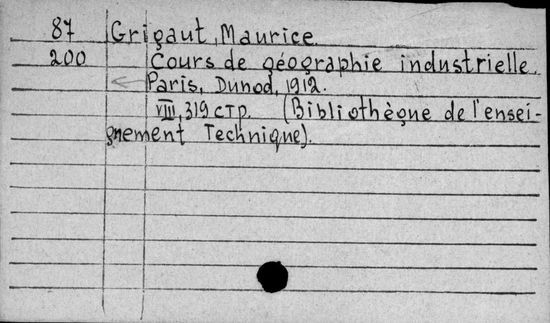 87 Grigaut, Maurice.
200 Cours de géographie industrielle.
Paris, Dunod, 1912.
VIII, 319 стр. (Bibliothèque de l'ensei-
gnement Technique).